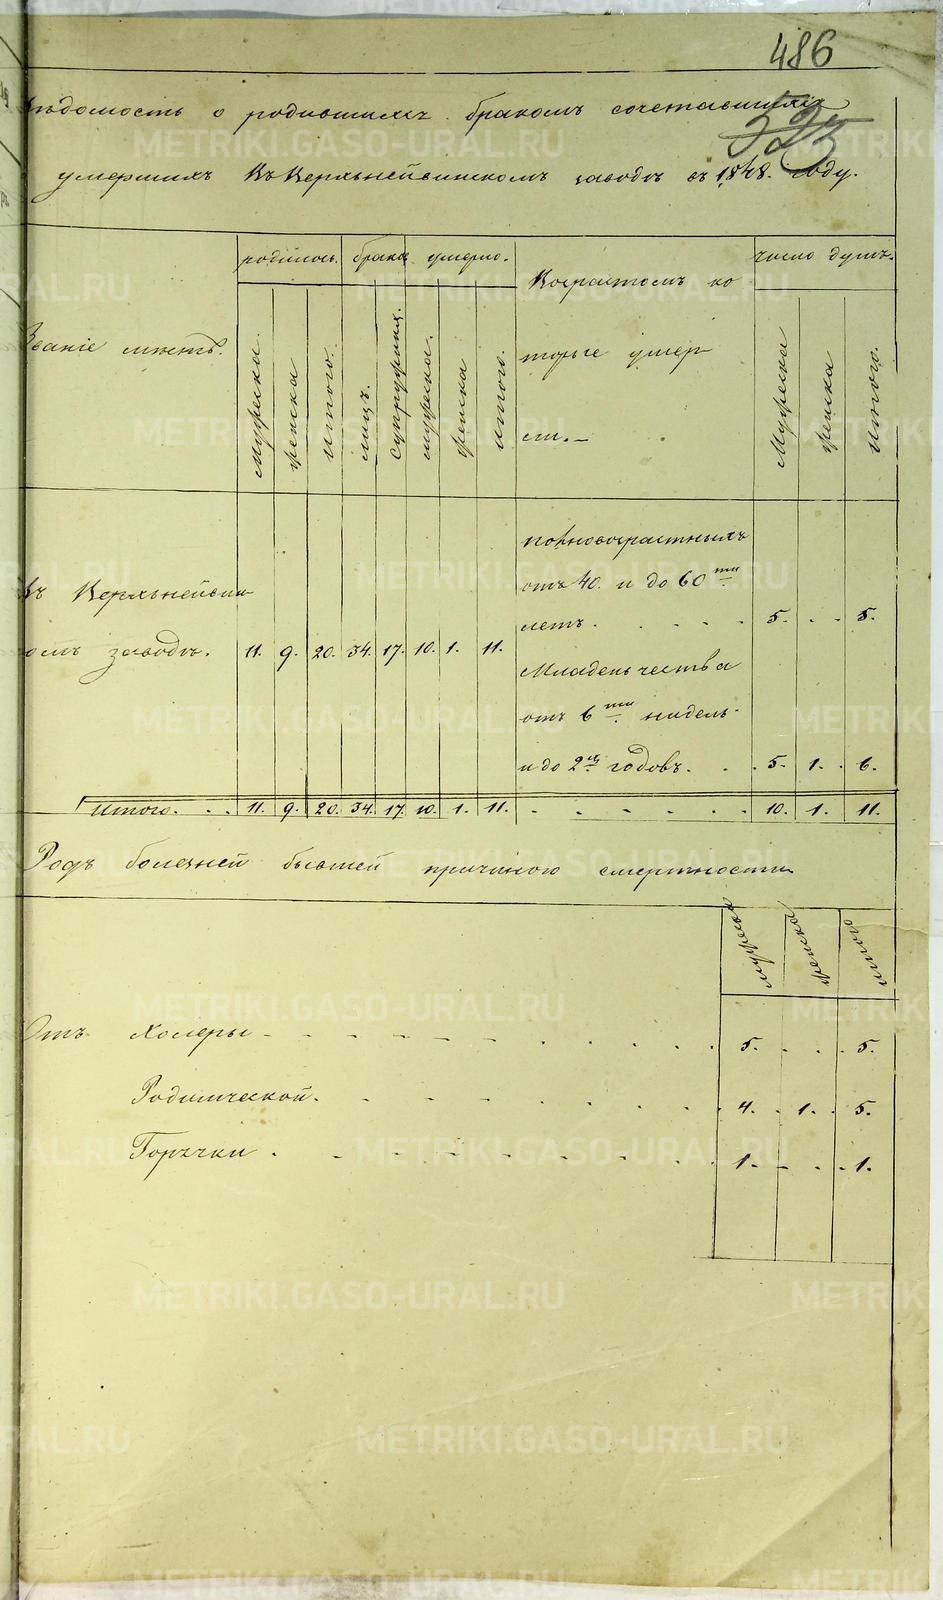 486
323
Ведомость о родившихъ бракомъ сочетавшихъ
умершихъ Въ Верхьнейвинскомъ заводѣ въ 1848. году.
родилось. брака умерло. число душъ.
Возрастомъ ко
Званіе мѣстъ. торые умер
ли.
Мужеска женска итого. лицъ. супружная. мужеска. женска итого. Мужеска женска итого.
полновозрастныхъ
отъ 40. и до 60ти
Въ Верхьнейвин
летъ. 5. 5.
скомъ заводѣ. 11. 9. 20. 34. 17. 10. 1. 11.
Младеньчества
отъ 6ти нидель
и до 2хъ годовъ. 5. 1. 6.
Итого. 11. 9. 20. 34. 17. 10. 1. 11. 10. 1. 11.
Родъ болезней бывшей причиною смертности
мужеска женска итого
Отъ Холеры 5. 5.
Родимческой. 4. 1. 5.
Горячки. 1. 1.
METRIKI.GASO-URAL.RU